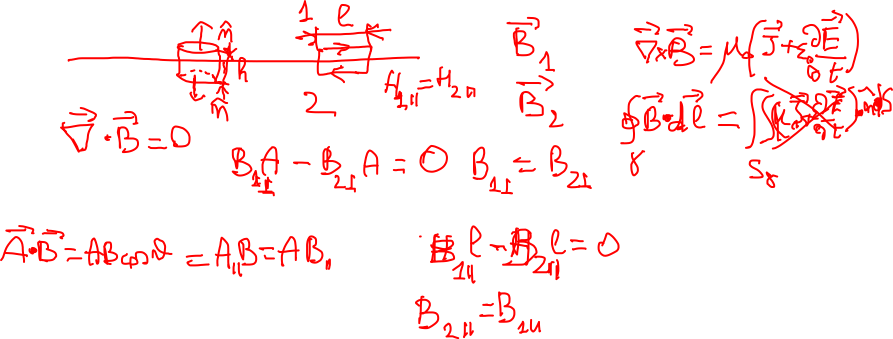 1 l
n̂
h
n̂
2
H₁∥ = H₂∥
B⃗₁
B⃗₂
∇⃗×B⃗ = μ₀(J⃗ + ε₀ ∂E⃗/∂t)
∇⃗·B⃗ = 0
∮B⃗·dl⃗ = ∬
γ
S_γ
B₁⊥A − B₂⊥A = 0 B₁⊥ = B₂⊥
A⃗·B⃗ = AB cosϑ = A∥B = AB∥
B₁∥l − B₂∥l = 0
B₂∥ = B₁∥